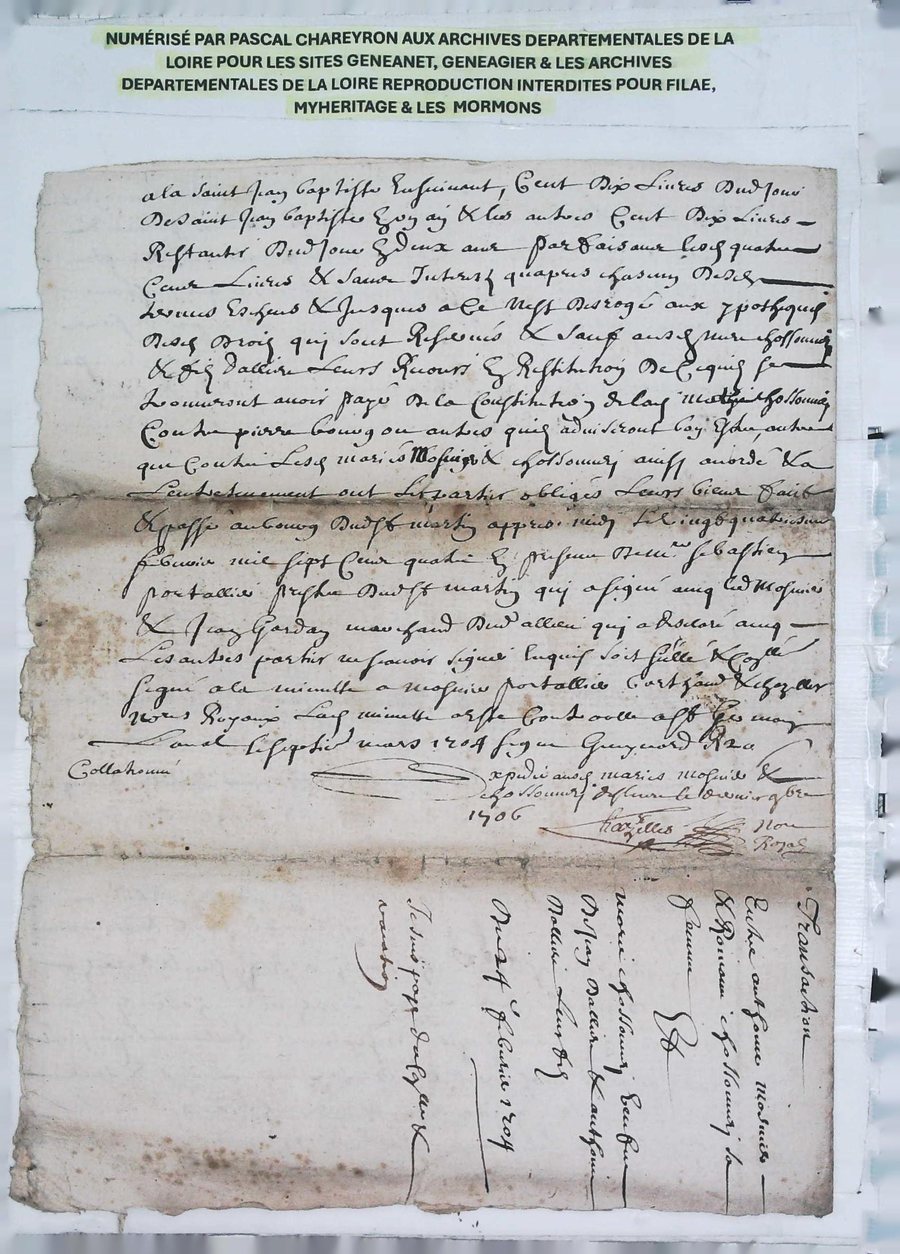 NUMÉRISÉ PAR PASCAL CHAREYRON AUX ARCHIVES DEPARTEMENTALES DE LA
LOIRE POUR LES SITES GENEANET, GENEAGIER & LES ARCHIVES
DEPARTEMENTALES DE LA LOIRE REPRODUCTION INTERDITES POUR FILAE,
MYHERITAGE & LES MORMONS
a la saint Jean baptiste Ensuivant, Cent Dix Livres Dud Jour
De saint Jean baptiste En un an & les autres Cent Dix Livres
Restants Dud Jour En Deux ans parfaisant lesd quatre
Cent Livres & sans Interest qu'apres chascun Desd
termes Escheus & Jusques a ce N'est Derogé aux ypotheques
Desd Droits qui sont Reservés & sauf ausd chossonnery
& fils dalliere Leurs Recours En Restitution De Ce quils se
trouveront avoir payé De la Constitution de lad chossonnery
Contre pierre bourg ou autres quils adviseront bon Estre, autre
que Contre Lesd mariés Mosnier & chossonnery ainsy acordé & a
L'entretenement ont Les parties obligés Leurs biens fait
& passé au bourg Dud St martin appres midy Le vingt quatriesme
febvrier mil sept Cent quatre En presence De mre sebastien
portallier prestre Dud St martin qui a signé avec led Mosnier
& Jean Gardan marchand Dud allieu qui a declaré avec
Les autres parties ne scavoir signer Enquis soit scellé & Collé
signé a la minutte a mosnier portallier & chazelles
nore Royaux Lad minutte a esté Controolle a St
Laval le septie mars 1704 signe Guynard
Collationné
Expedié ausd mariés mosnier &
chossonnery le dernier 9bre
1706
Chazelles Nore
Royal
Transaction
Entre anthoine mosnier
& Romaine chossonnery sa
femme Et
marie chossonnery veufve
De Jean Dalliere & anthoine
Dalliere Leur fils
Du 24 febvrier 1704
Je suis payé &